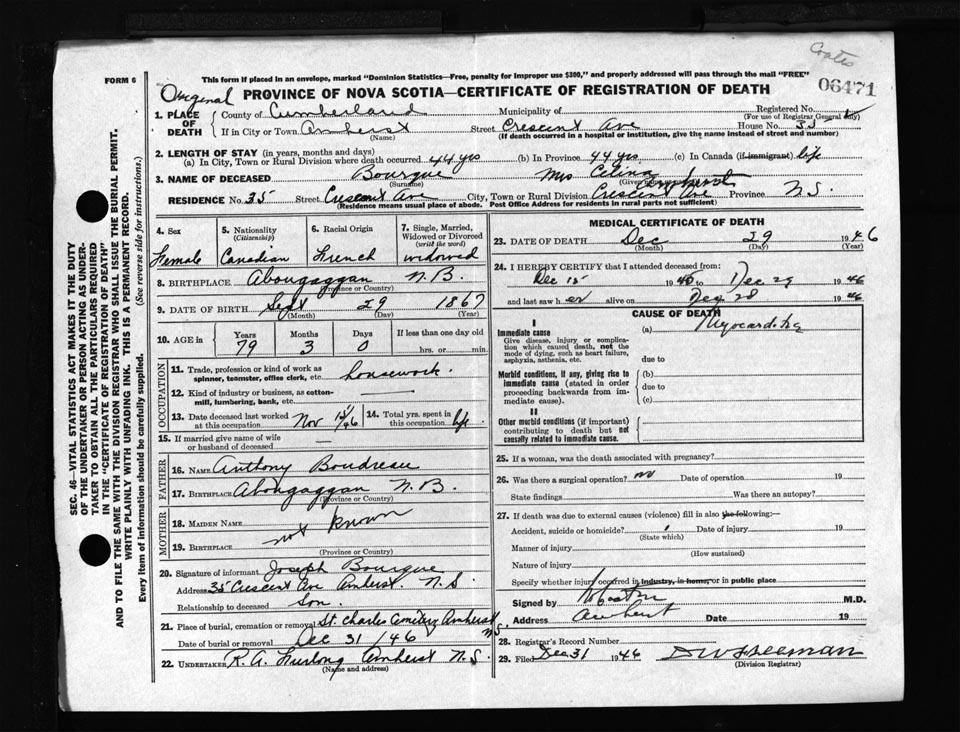 Coates
FORM 6
This form if placed in an envelope, marked "Dominion Statistics—Free, penalty for improper use $300," and properly addressed will pass through the mail "FREE"
06471
Original PROVINCE OF NOVA SCOTIA—CERTIFICATE OF REGISTRATION OF DEATH
1. PLACE OF DEATH { County of Cumberland Municipality of Registered No.
(For use of Registrar General only)
If in City or Town Amherst Street Crescent Ave House No. 35
(Name) (If death occurred in a hospital or institution, give the name instead of street and number)
2. LENGTH OF STAY (in years, months and days)
(a) In City, Town or Rural Division where death occurred 44 yrs (b) In Province 44 yrs (c) In Canada (if immigrant) life
3. NAME OF DECEASED Bourque Mrs Celina
(Surname) (Given
RESIDENCE No. 35 Street Crescent Ave City, Town or Rural Division Crescent Ave Amherst Province N.S.
(Residence means usual place of abode. Post Office Address for residents in rural parts not sufficient)
4. Sex
Female
5. Nationality
(Citizenship)
Canadian
6. Racial Origin
French
7. Single, Married, Widowed or Divorced
(write the word)
widowed
8. BIRTHPLACE Abougaggan N.B.
(Province or Country)
9. DATE OF BIRTH Sept 29 1867
(Month) (Day) (Year)
10. AGE in { Years Months Days If less than one day old
79 3 0 hrs. or min.
OCCUPATION
11. Trade, profession or kind of work as
spinner, teamster, office clerk, etc. housework.
12. Kind of industry or business, as cotton-
mill, lumbering, bank, etc.
13. Date deceased last worked
at this occupation Nov /46
14. Total yrs. spent in
this occupation life
15. If married give name of wife
or husband of deceased —
FATHER
16. NAME Anthony Boudreau
17. BIRTHPLACE Abougaggan N.B.
(Province or Country)
MOTHER
18. MAIDEN NAME not known
19. BIRTHPLACE
(Province or Country)
20. Signature of informant Joseph Bourque
Address 35 Crescent Ave Amherst. N.S.
Relationship to deceased Son.
21. Place of burial, cremation or removal St. Charles Cemetery Amherst N.S.
Date of burial or removal Dec 31 /46
22. UNDERTAKER R. A. Furlong Amherst N.S.
(Name and address)
MEDICAL CERTIFICATE OF DEATH
23. DATE OF DEATH Dec 29 1946
(Month) (Day) (Year)
24. I HEREBY CERTIFY that I attended deceased from:
Dec 15 19 to Dec 29 1946
and last saw her alive on Dec 28 1946
CAUSE OF DEATH
I
Immediate cause
Give disease, injury or complica-
tion which caused death, not the
mode of dying, such as heart failure,
asphyxia, asthenia, etc.
(a) Myocarditis
due to
Morbid conditions, if any, giving rise to
immediate cause (stated in order
proceeding backwards from im-
mediate cause).
(b)
due to
(c)
II
Other morbid conditions (if important)
contributing to death but not
causally related to immediate cause.
25. If a woman, was the death associated with pregnancy?
26. Was there a surgical operation? no Date of operation 19
State findings Was there an autopsy?
27. If death was due to external causes (violence) fill in also the following:—
Accident, suicide or homicide? Date of injury 19
(State which)
Manner of injury
(How sustained)
Nature of injury
Specify whether injury occurred in industry, in home, or in public place
Signed by M.D.
Address Amherst Date 19
28. Registrar's Record Number
29. Filed Dec 31 1946 D W Freeman
(Division Registrar)
SEC. 46—VITAL STATISTICS ACT MAKES IT THE DUTY
OF THE UNDERTAKER OR PERSON ACTING AS UNDER-
TAKER TO OBTAIN ALL THE PARTICULARS REQUIRED
IN THE "CERTIFICATE OF REGISTRATION OF DEATH"
AND TO FILE THE SAME WITH THE DIVISION REGISTRAR WHO SHALL ISSUE THE BURIAL PERMIT.
WRITE PLAINLY WITH UNFADING INK. THIS IS A PERMANENT RECORD.
Every item of information should be carefully supplied. (See reverse side for instructions.)